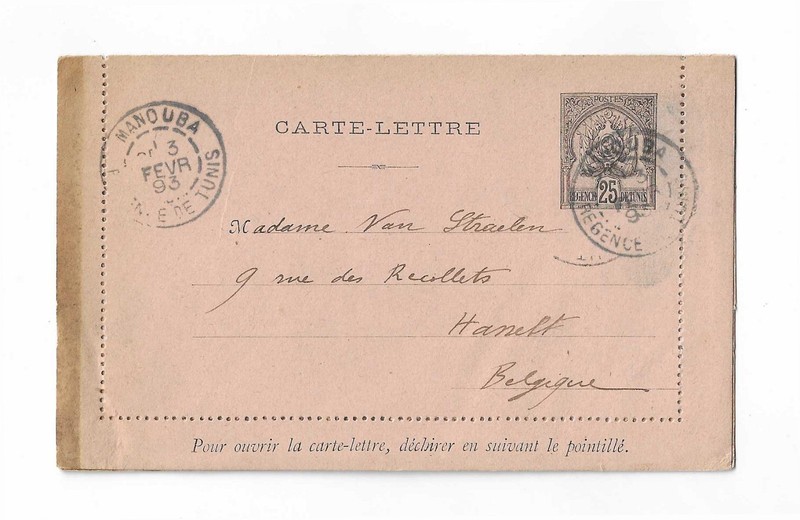 MANOUBA
3
FEVR
93
DE TUNIS
CARTE-LETTRE
POSTES
25
REGENCE DE TUNIS
MANOUBA
3
9
REGENCE
Madame Van Straelen
9 rue des Recollets
Hasselt
Belgique
Pour ouvrir la carte-lettre, déchirer en suivant le pointillé.